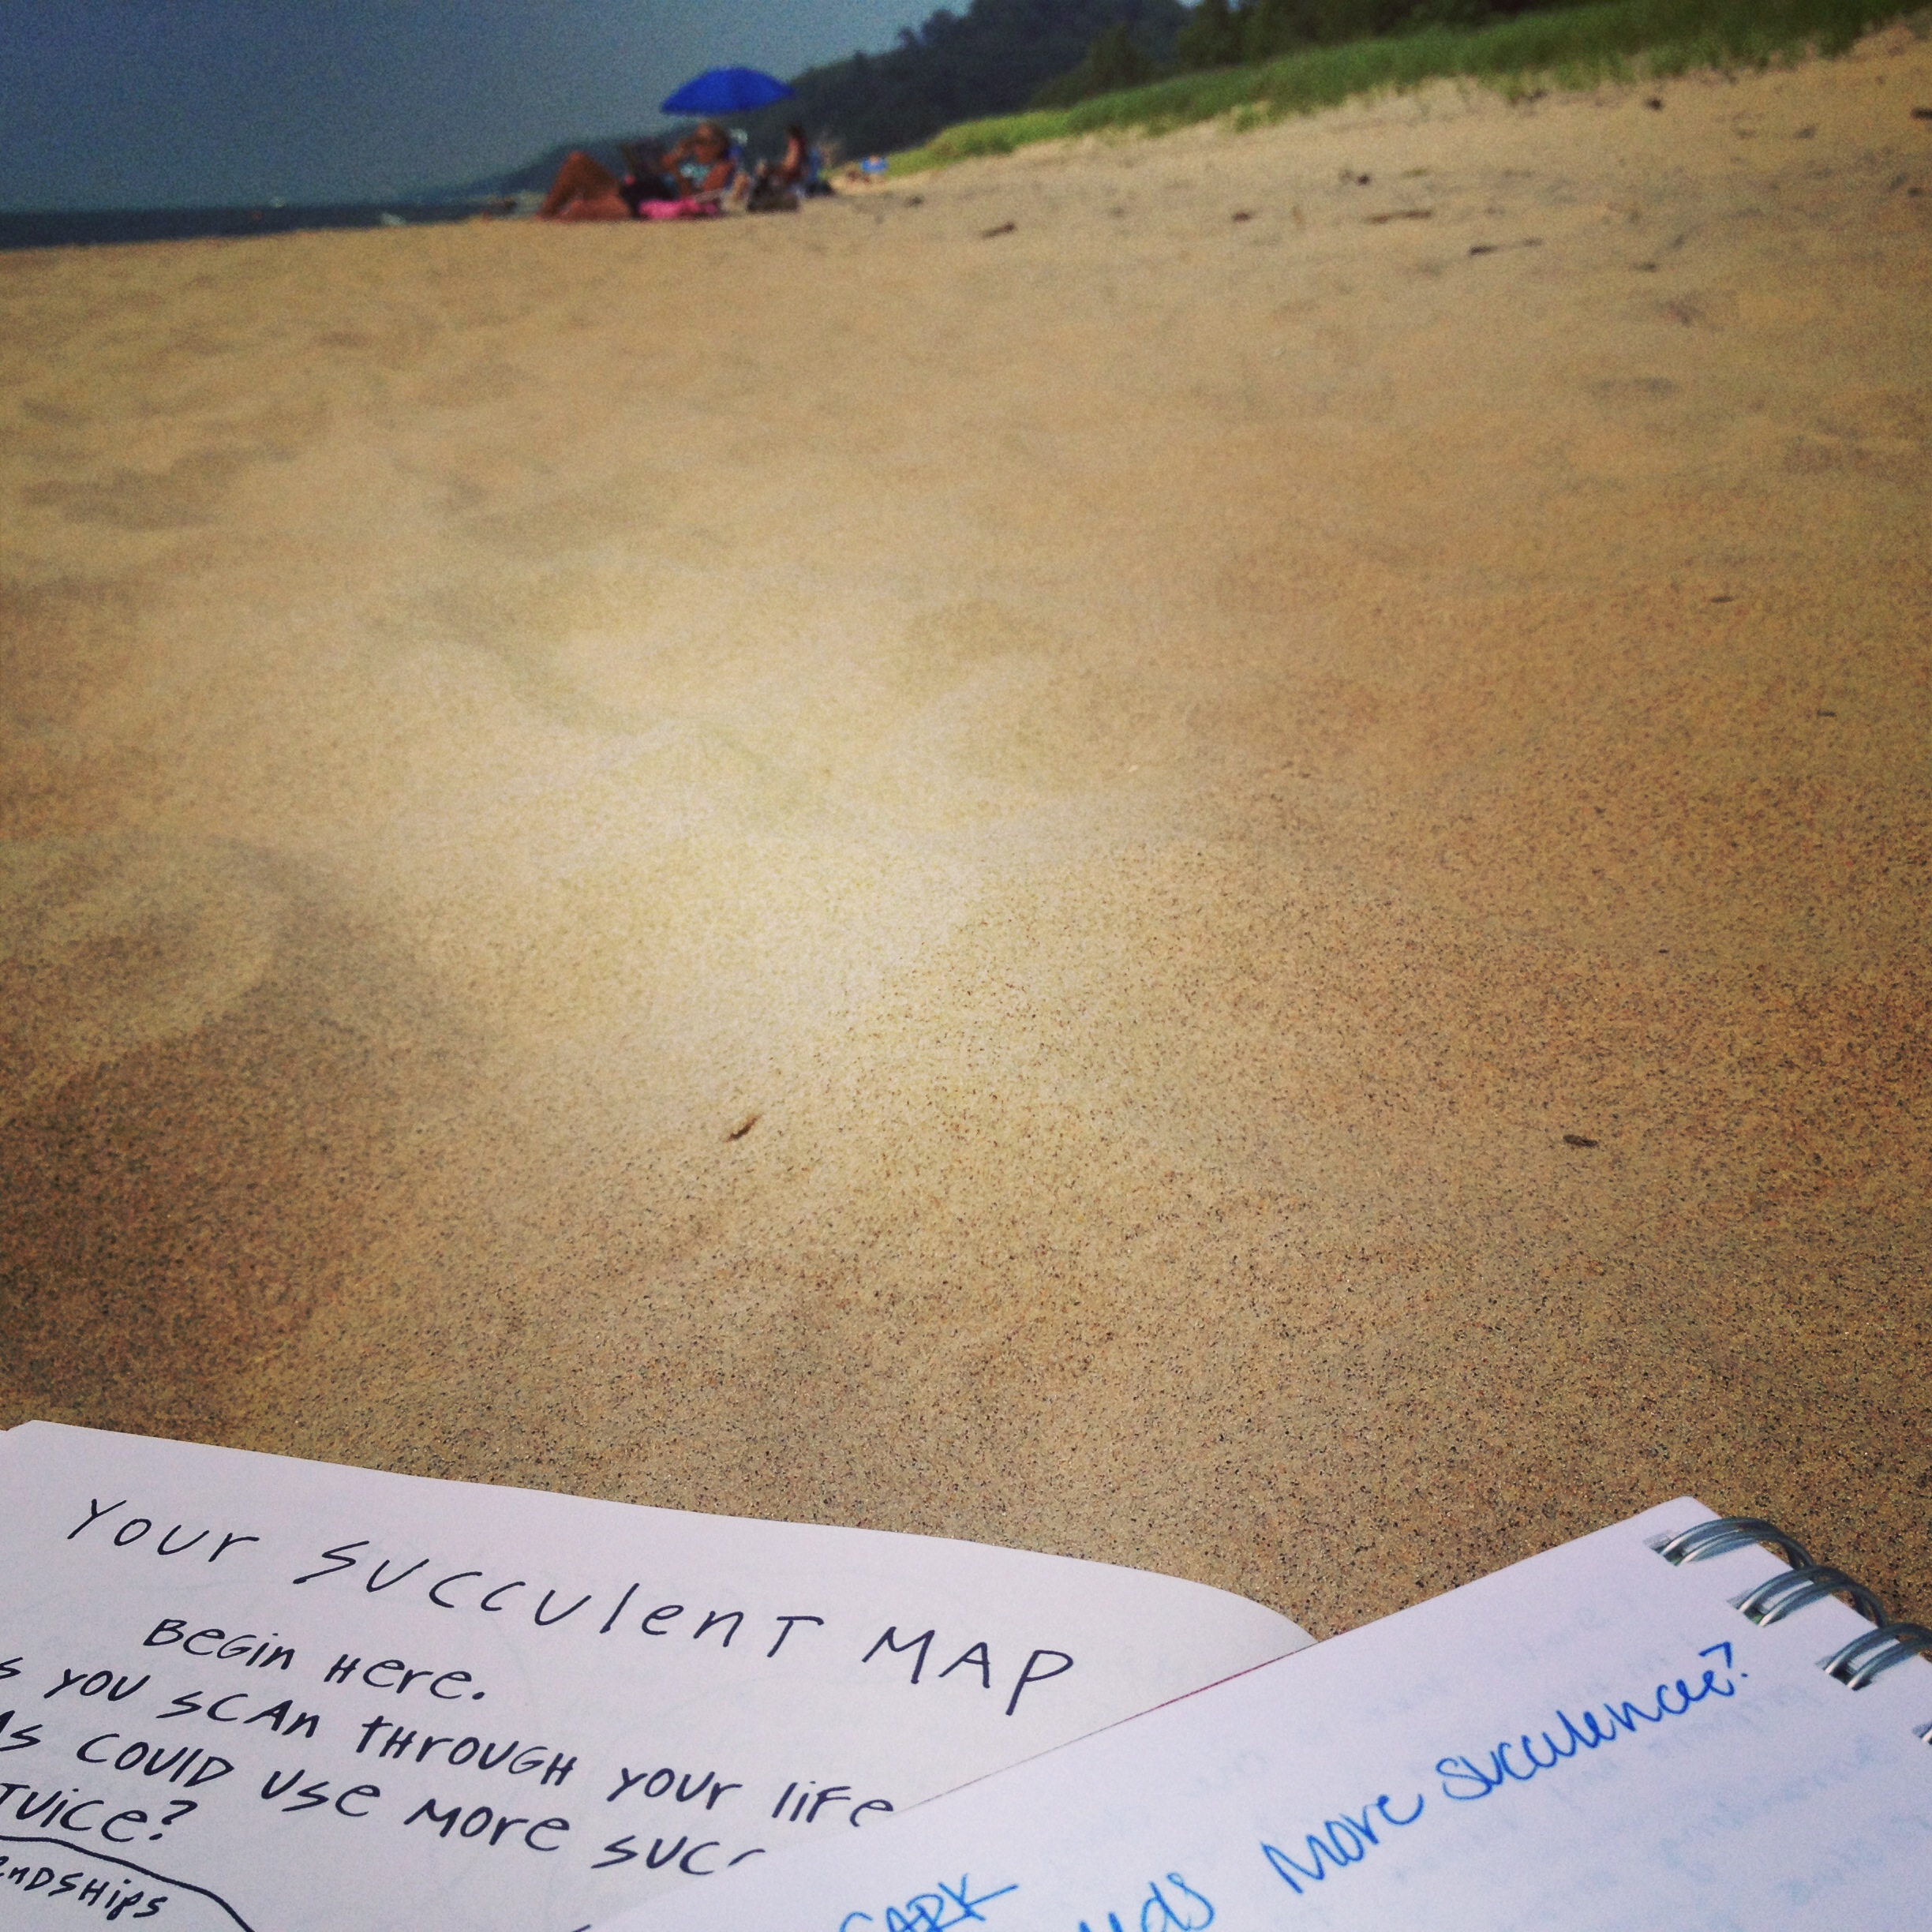 Your Succulent MAP
Begin Here.
s you scan through your life
As could use more succ
Juice?
endships
SARK
More succulence?